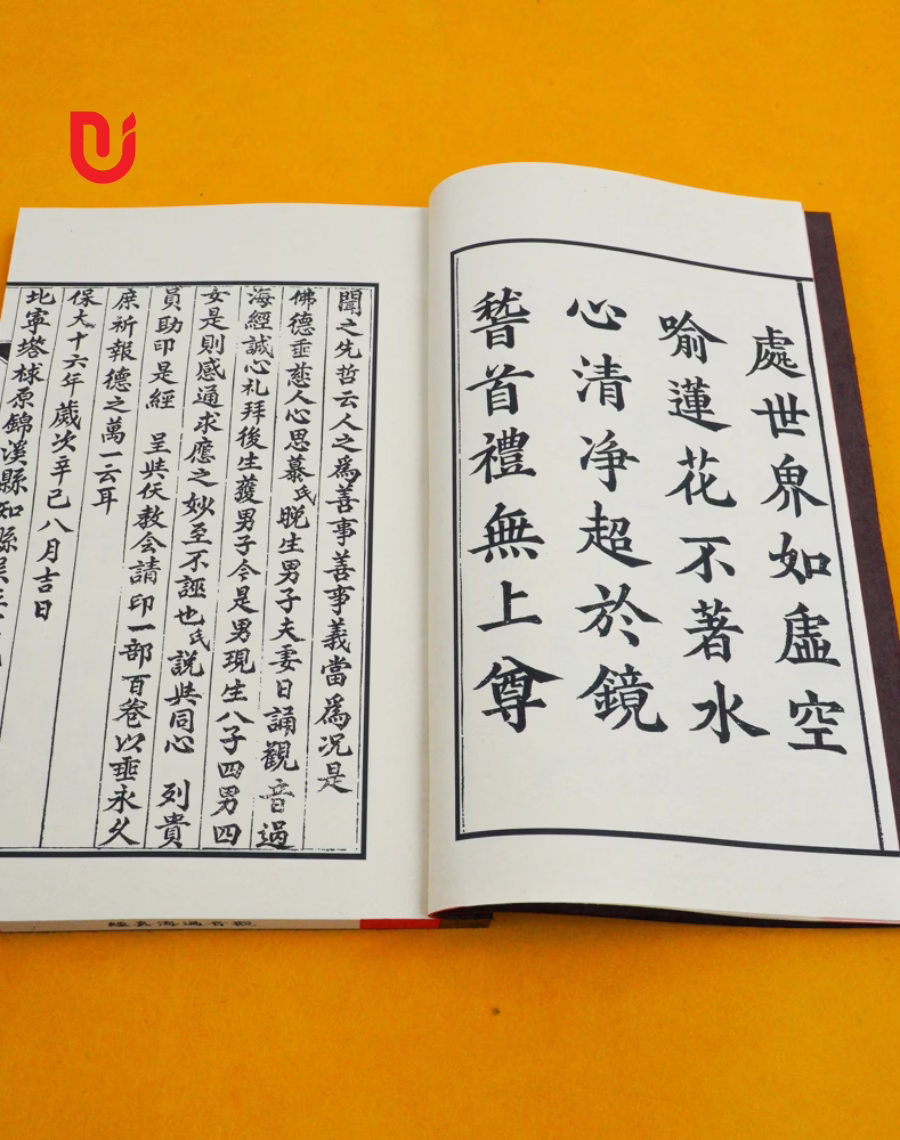 處世界如虛空
喻蓮花不著水
心清净超於鏡
稽首禮無上尊
聞之先哲云人之爲善事善事義當爲况是
佛德垂慈人心思慕氏晚生男子夫妻日誦觀音過
海經誠心礼拜後生蒦男子今是男現生八子四男四
女是則感通求應之妙至不誣也氏説共同心 列貴
員助印是經 呈共伏教会請印一部百卷以垂永久
庶祈報德之萬一云耳
保大十六年歲次辛巳八月吉日
北寧塔梂原錦溪縣知縣吳
經真海過音觀